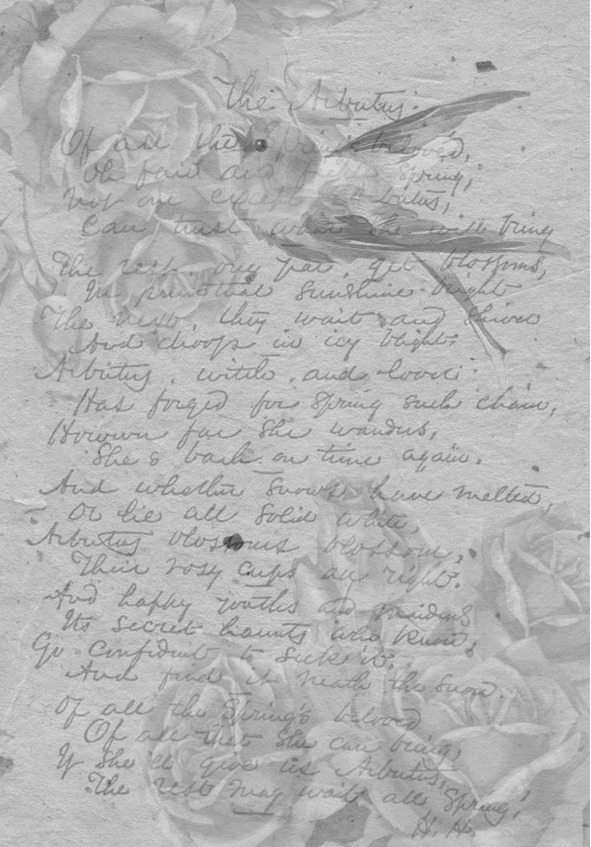 The Arbutus.
Of all the Spring's beloved,
Oh fair and fickle Spring,
Not one except Arbutus,
Can trust what she will bring
The rest, may get blossoms,
In punctual sunshine bright
The next, they wait and shiver
And droop in icy blight.
Arbutus, and love
Has forged for Spring such chain,
However far she wanders,
She's back on time again.
And whether Snows have melted,
Or lie all solid white,
Arbutus blossoms blossom,
Their rosy cups all right.
And happy youths and maidens
Its secret haunts who know,
Go confident to seek it,
And find it neath the snow.
Of all the Spring's beloved
Of all that she can bring,
If she'll give us Arbutus,
The rest may wait all Spring!
H. H.